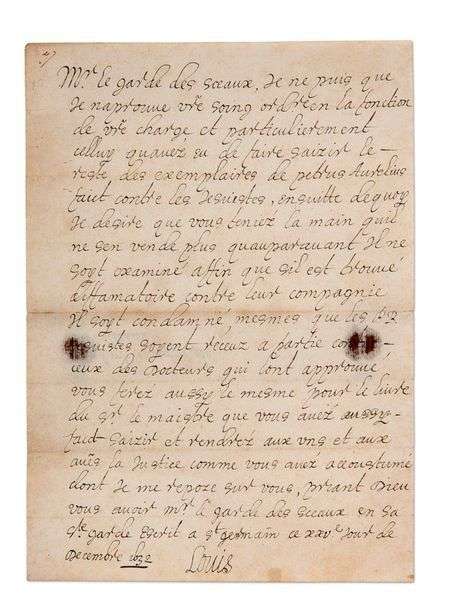 Mr le garde des sceaux, Je ne puis que
Je naprouve vre soing ordre en la fonction
de vre charge et particulierement
celluy quavez eu de faire saizir le
reste des exemplaires de petrus Aurelius
faut contre les Jesuistes, ensuitte dequoy
Je desire que vous teniez la main quil
ne sen vende plus quauparavant Il ne
soyt examiné affin que sil est trouvé
diffamatoire contre leur compagnie
Il soyt condamné, mesmes que les
Jesuistes soyent receuz a partie contre
ceux des Docteurs qui lont approuvé
vous ferez aussy le mesme pour le livre
du sr le maistre que vous avez aussy
faut saizir et rendrez aux uns et aux
aues la Justice comme vous avez accoustumé
dont Je me repoze sur vous, priant Dieu
vous avoir mr le garde des sceaux en sa
ste garde Escrit a st germain ce xxve Jour de
Decembre 1632
Louis